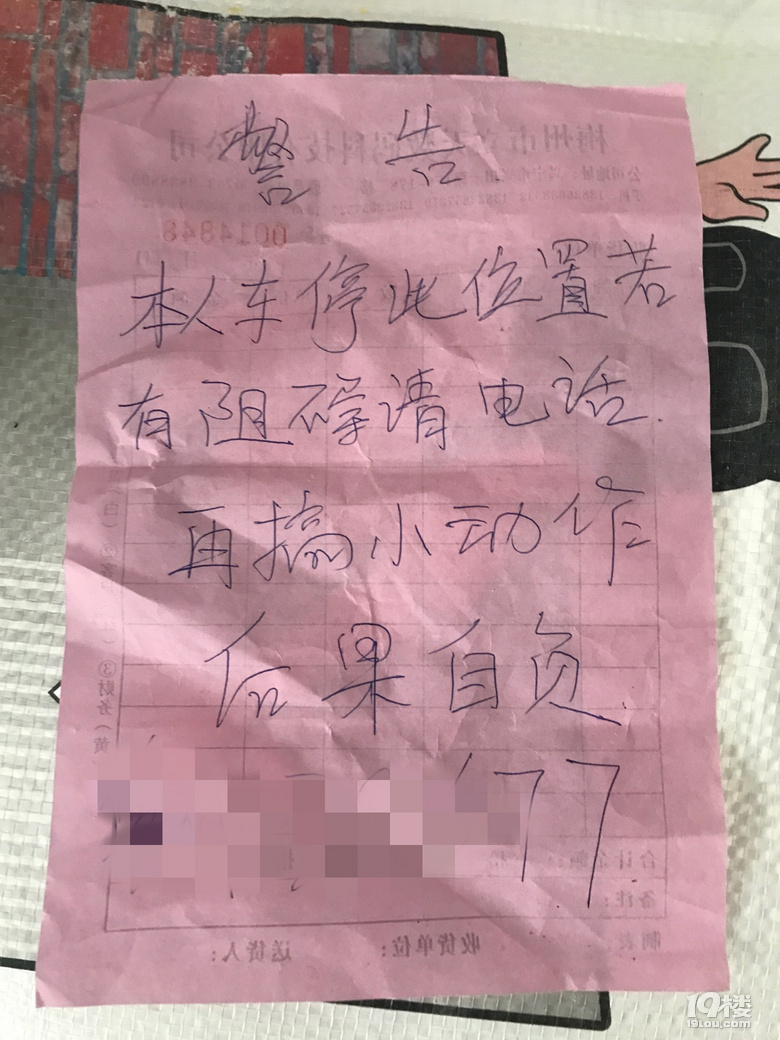 警告
本人车停此位置若
有阻碍请电话.
再搞小动作
后果自负
77
0014848
③财务（黄
合计金额：
备注：
制表：
收货单位：
送货人：
19楼
19lou.com